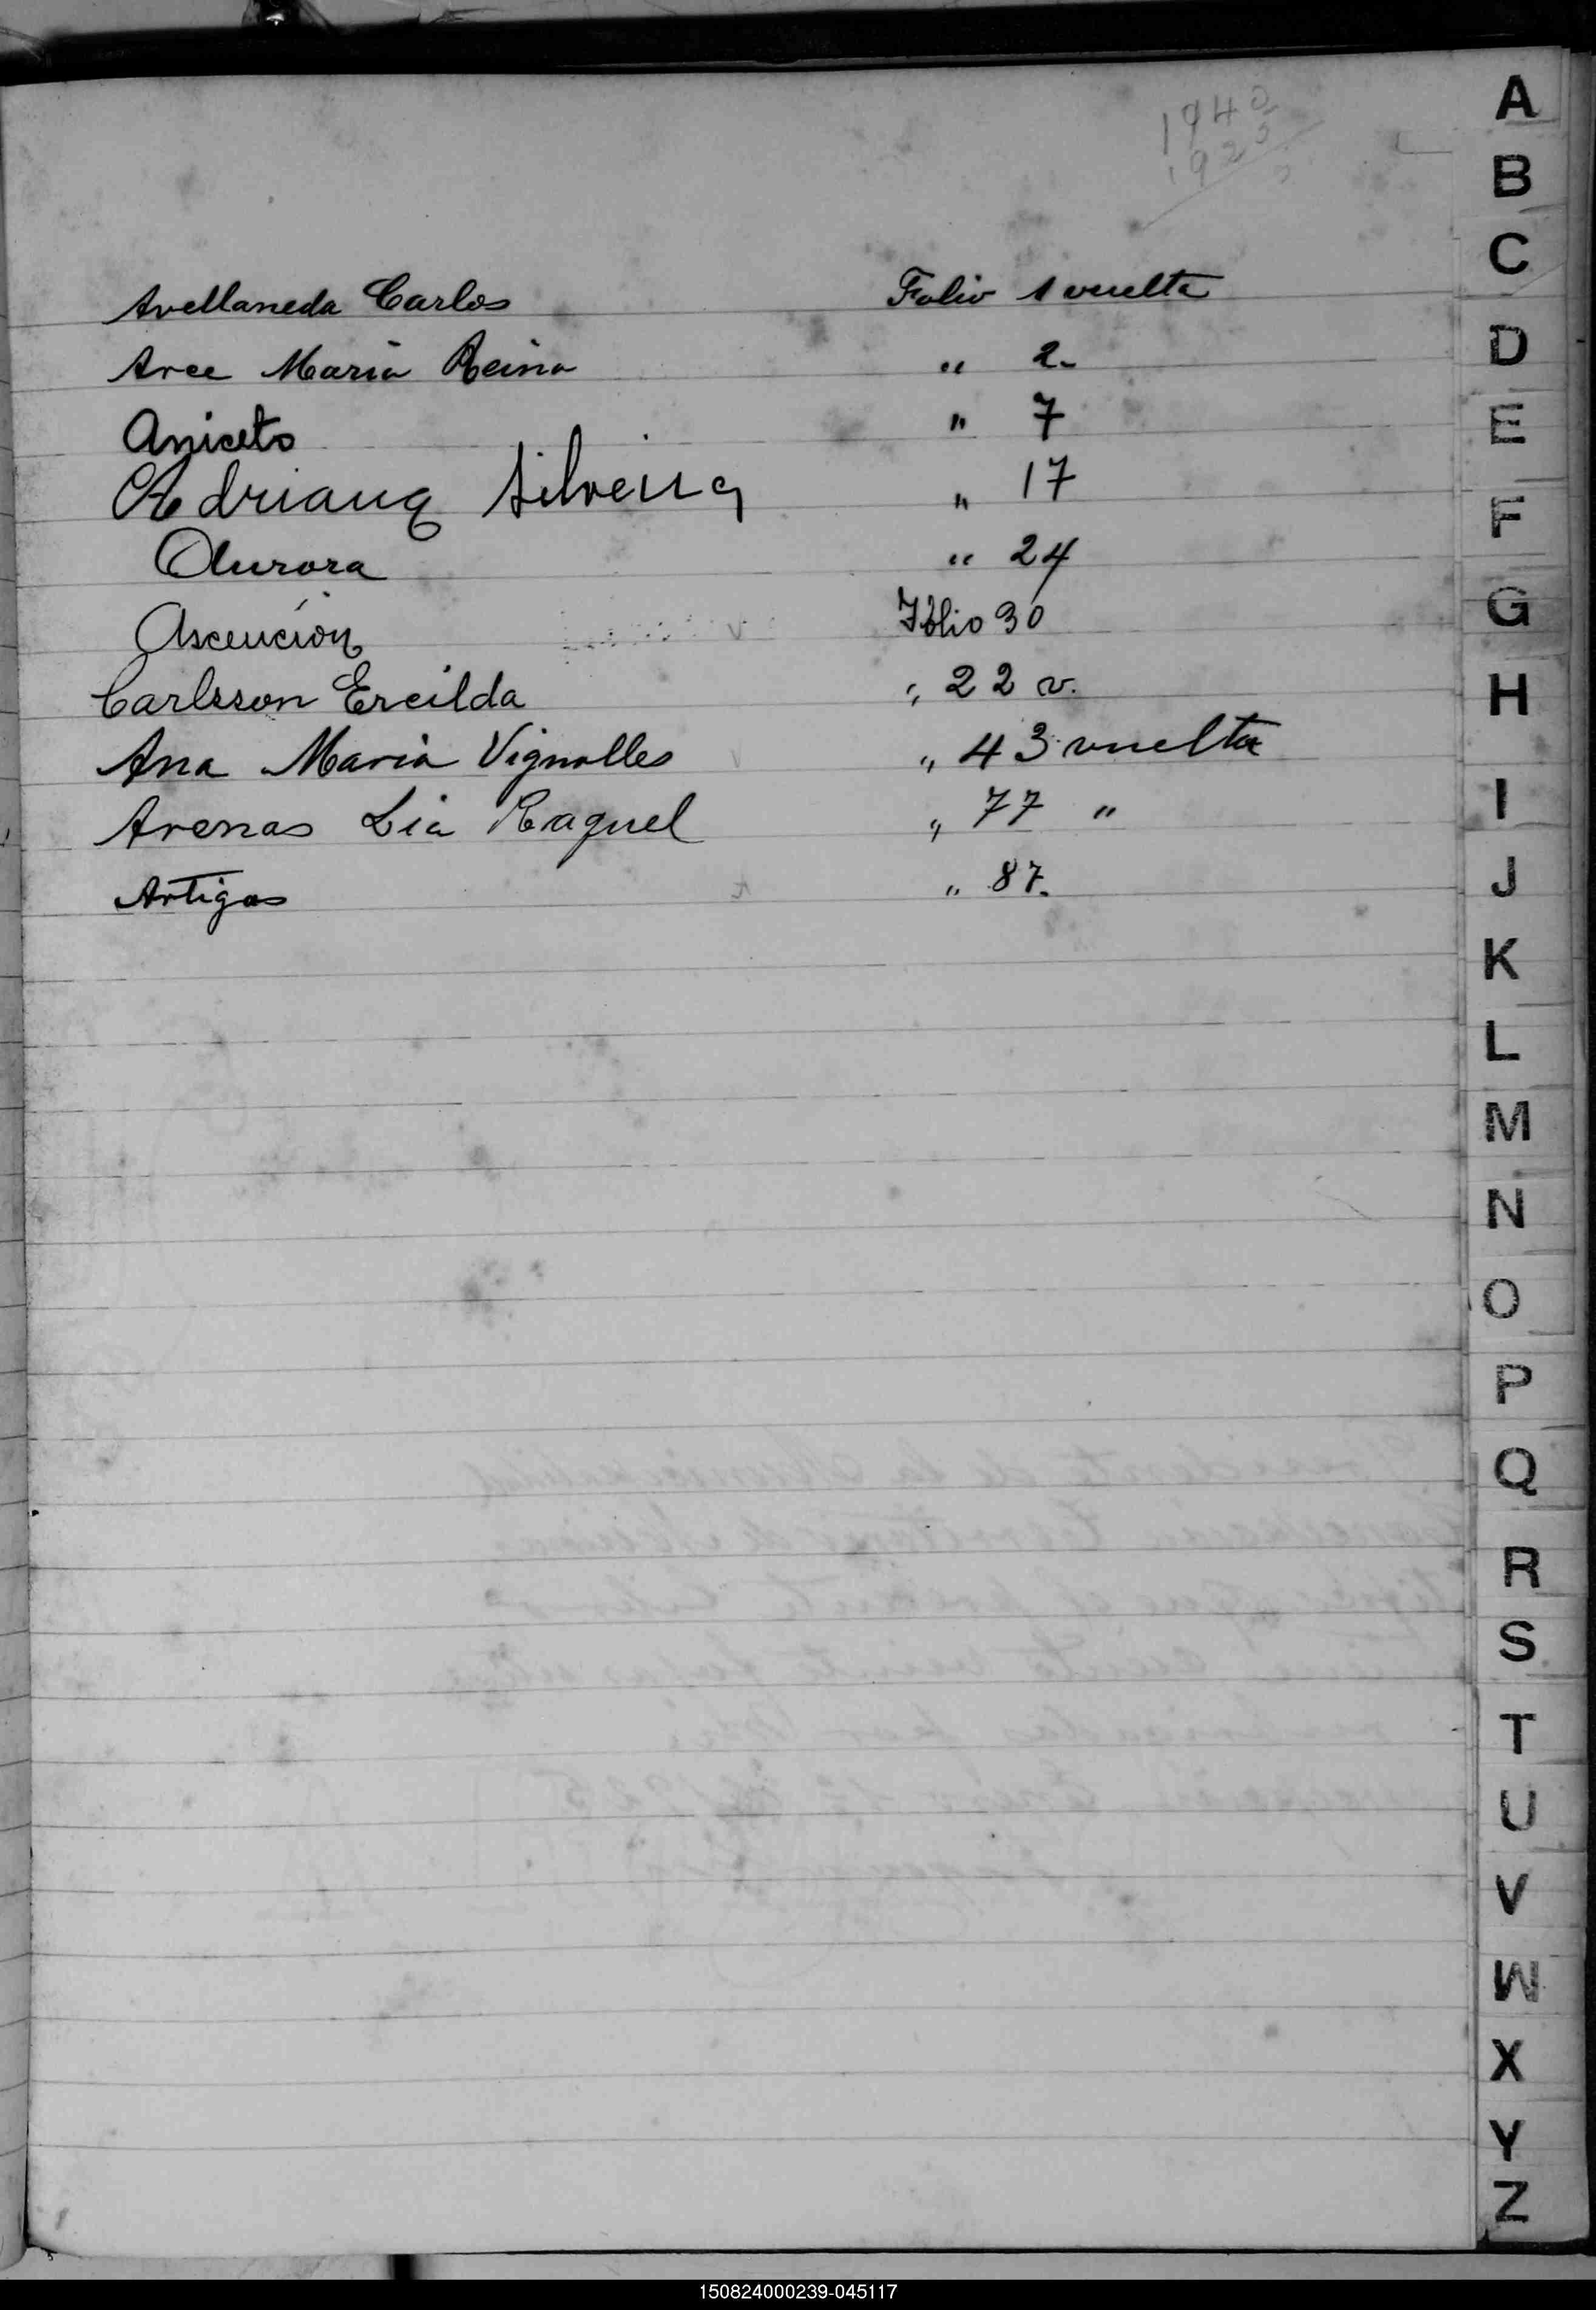 1940
1920
Avellaneda Carlos Folio 1 vuelta
Arce Maria Reina " 2.
Aniceto " 7
Adriana Silveira " 17
Aurora " 24
Ascención Folio 30
Carlsson Ercilda " 22 v.
Ana Maria Vignolles " 43 vuelta
Arenas Lia Raquel " 77 "
Artigas " 87.
A
B
C
D
E
F
G
H
I
J
K
L
M
N
O
P
Q
R
S
T
U
V
W
X
Y
Z
150824000239-045117